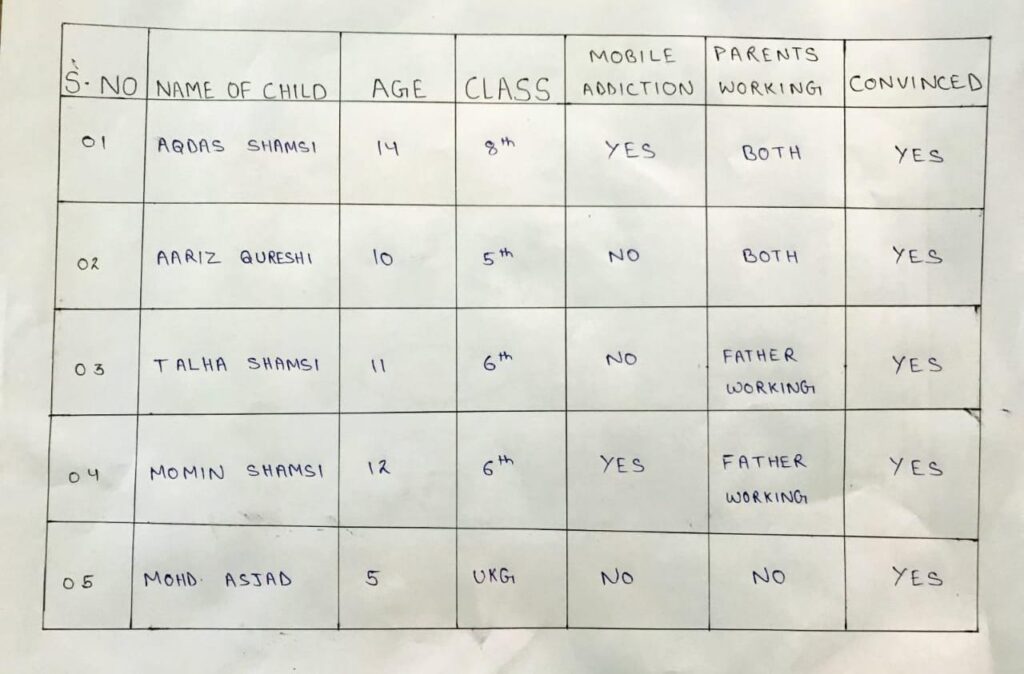 S. NO NAME OF CHILD AGE CLASS MOBILE ADDICTION PARENTS WORKING CONVINCED
01 AQDAS SHAMSI 14 8th YES BOTH YES
02 AARIZ QURESHI 10 5th NO BOTH YES
03 TALHA SHAMSI 11 6th NO FATHER WORKING YES
04 MOMIN SHAMSI 12 6th YES FATHER WORKING YES
05 MOHD. ASJAD 5 UKG NO NO YES